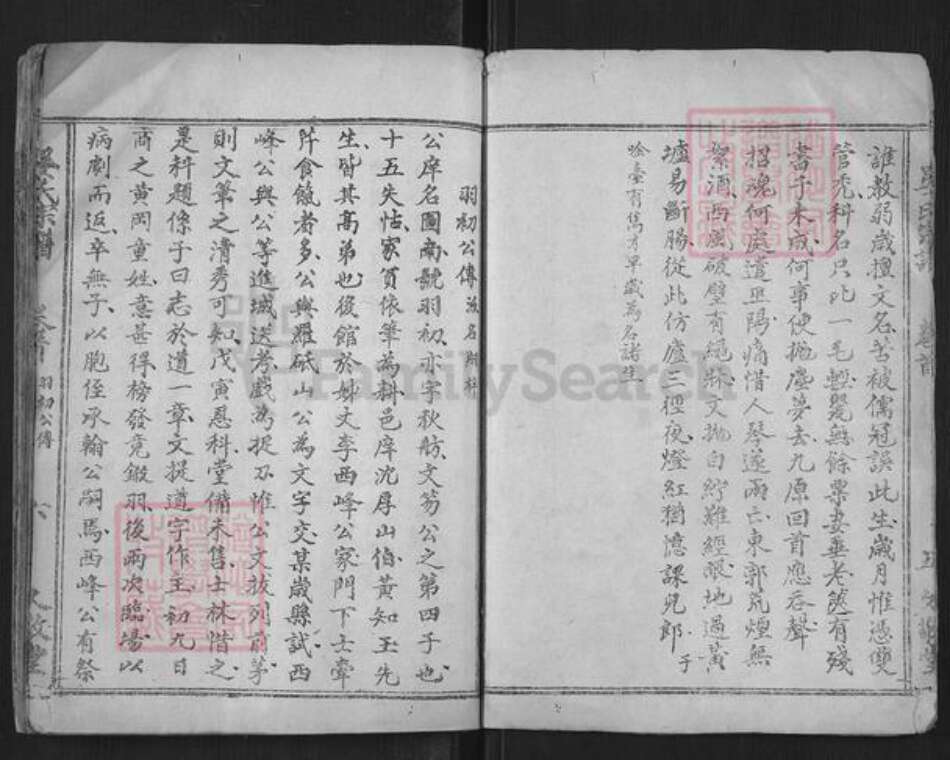 誰教弱歲擅文名苦被儒冠誤此生歲月惟憑雙
管禿科名只此一毛輕甖無餘粟妻垂老篋有殘
書子未成何事便拋塵夢去九原回首應吞聲
招魂何處遣巫陽痛惜人琴遂兩亡東郭荒煙無
絮酒西風破壁有繩牀文拋白紵難經眼地過黃
壚易斷腸從此仿廬三徑夜燈紅猶憶課兒郎
于
公庠名圖南號羽初亦字秋舫文笏公之第四子也
十五失怙家貧依筆為耕邑庠沈厚山伯黃知玉先
生皆其高弟也後館於妙文李西峰公家門下士牽
併食餼者多公與羅砥山公為文字交某歲縣試西
峰公與公等進城送考戲為捉刀惟公文拔列前茅
則文筆之清秀可知戊寅恩科堂備未售士林惜之
是科題係子曰志於道一章文提道字作主初九日
商之黃岡童姓意甚得榜發竟鎩羽後兩次臨場以
病劇而返卒無子以胞侄承翰公嗣焉西峰公有祭
羽初公傳
六